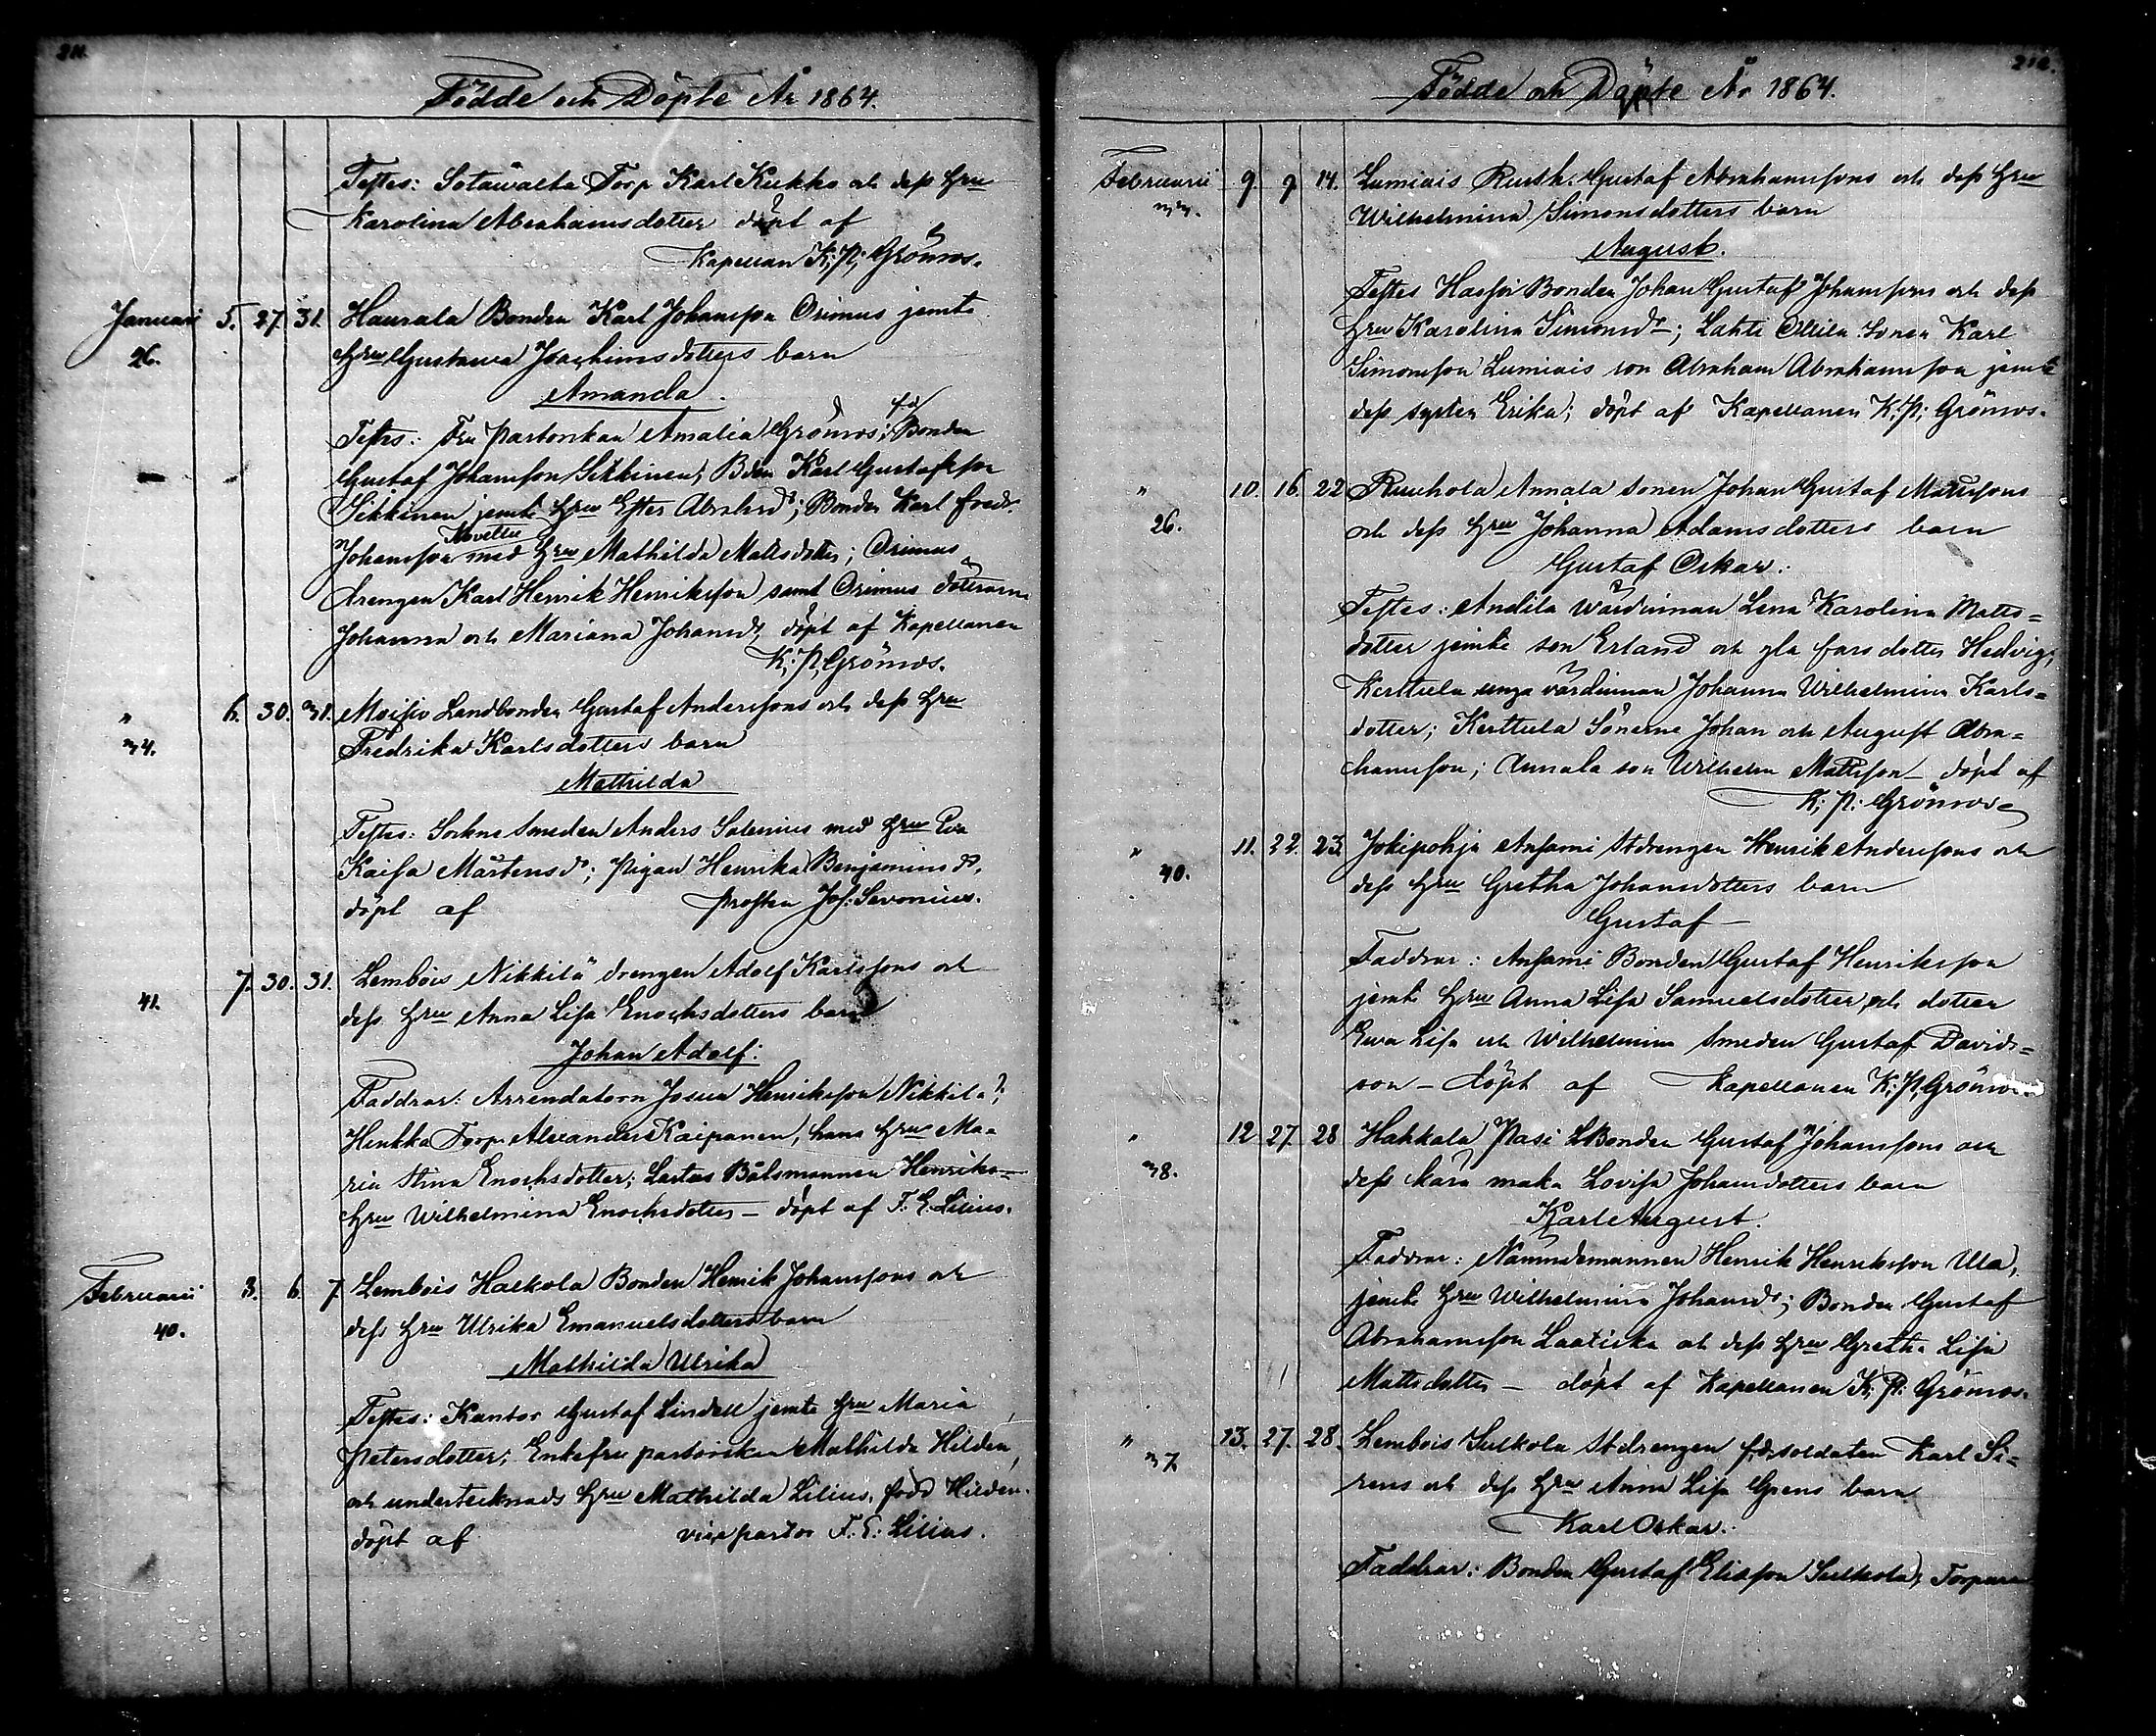 211.
Födde och Döpte År 1864.
Testes: Sotawalta Torp Karl Kukko och dess Hru
Karolina Abrahamsdotter döpt af
Kapellan K: P: Grönros.
Januari 5. 27. 31. Haurala Bonden Karl Johansson Orimus jemte
26. Hru Gustawa Joachimsdotters barn
Amanda.
Testes: Fru Pastorskan Amalia Grönros; fd Bonden
Gustaf Johansson Sikkinen; Bden Karl Gustafsson
Sikkinen jemte Hru Ester Abrahsdr; Bonden Karl Fredr.
Johansson med Hru Mathilda Mattsdotter; Orimus
Drengen Karl Henrik Henriksson samt Orimus döttrarne
Johanna och Mariana Johansdr, döpt af Kapellanen
K: P: Grönros.
" 6. 30. 31. Moisio Landbonden Gustaf Anderssons och dess Hru
34. Fredrika Karlsdotters barn
Mathilda
Testes: Sockne Smeden Anders Salenius med Hru Eva
Kaisa Mårtensdr; Pigan Henrika Benjaminsdr.
döpt af Prosten Jos: Sevonius.
7. 30. 31. Lembois Nikkilä drengen Adolf Karlssons och
41. dess Hru Anna Lisa Enochsdotters barn
Johan Adolf.
Faddrar: Arrendatorn Josua Henriksson Nikkilä;
Henkka Torp. Alexander Kaipanen, hans Hru Ma=
ria Stina Enochsdotter; Bålsmannen Henriks
Hru Wilhelmina Enochsdotter – döpt af F. E. Lilius.
Februarii 8. 6. 7. Lembois Halkola Bonden Henrik Johanssons och
40. dess Hru Ulrika Emanuelsdotters barn
Mathilda Ulrika
Testes: Kantor Gustaf Lindell jemte Hru Maria
Petersdotter; Enkefru pastorskan Mathilda Hildén,
och undertecknads Hru Mathilda Lilius, född Hildén.
döpt af vice pastor F. E. Lilius.
212.
Födde och Döpte År 1864.
Februarii 9. 9. 14. Lumiais Rusth. Gustaf Abrahamssons och dess Hru
33. Wilhelmina Simonsdotters barn
August.
Testes Bonden Johan Gustaf Johanssons och dess
Hru Karolina Simonsdr; Lahti Ollila Sonen Karl
Simonsson Lumiais son Abraham Abrahamsson jemte
dess syster Erika; döpt af Kapellanen K: P: Grönros.
" 10. 16. 22 Ruuhola Annala sonen Johan Gustaf Matssons
26. och dess Hru Johanna Adamsdotters barn
Gustaf Oskar.
Testes: Andila Wärdinnan Lena Karolina Matts=
dotter jemte son Erland och gla fars dotter Hedvig;
Kerttula unga värdinnan Johanna Wilhelmina Karls=
dotter; Kerttula Sönerne Johan och August Abra=
hamsson; Annala son Wilhelm Mattsson – döpt af
K: P: Grönros
" 11. 22. 23. Jokipohja Anssmi Stdrengen Henrik Anderssons och
40. dess Hru Gretha Johansdotters barn
Gustaf
Faddrar: Anssmi Bonden Gustaf Henriksson
jemte Hru Anna Lisa Samuelsdotter, och dotter
Ewa Lisa och Wilhelmina Smeden Gustaf Davids=
son – döpt af Kapellanen K: P: Grönros.
" 12 27. 28 Hahkala Pasi LBonden Gustaf Johanssons och
38. dess kära maka Lovisa Johansdotters barn
Karl August.
Faddrar: Nämndemannen Henrik Henriksson Ula,
jemte Hru Wilhelmina Johansdr; Bonden Gustaf
Abrahamsson och dess Hru Gretha Lisa
Mattsdotter – döpt af Kapellanen K: P: Grönros.
" 13. 27. 28. Lembois Sulkola Stdrengen f.d. soldaten Karl Si=
37. rens och dess Hru Anna Lisa Grens barn
Karl Oskar.
Faddrar: Bonden Gustaf Eliasson Sulkola, Torparen